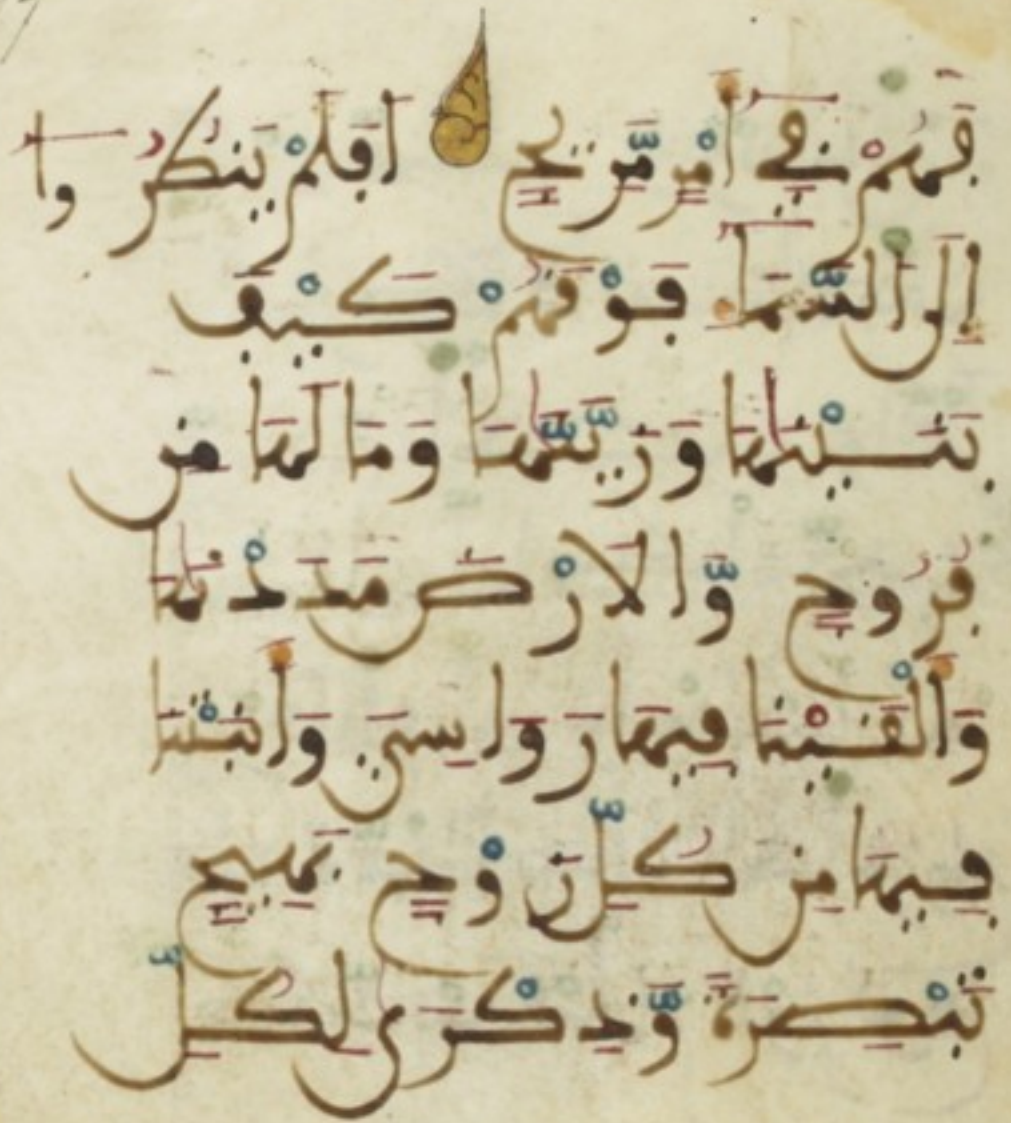 فَهُمْ فِيٓ أَمْرٖ مَّرِيجٍ أَفَلَمْ يَنظُرُوٓا
إِلَى السَّمَآءِ فَوْقَهُمْ كَيْفَ
بَنَيْنَٰهَا وَزَيَّنَّٰهَا وَمَا لَهَا مِن
فُرُوجٖ وَّالَارْضَ مَدَدْنَٰهَا
وَأَلْقَيْنَا فِيهَا رَوَٰسِيَ وَأَنۢبَتْنَا
فِيهَا مِن كُلِّ زَوْجِۭ بَهِيجٖ
تَبْصِرَةٗ وَّذِكْرَىٰ لِكُلِّ